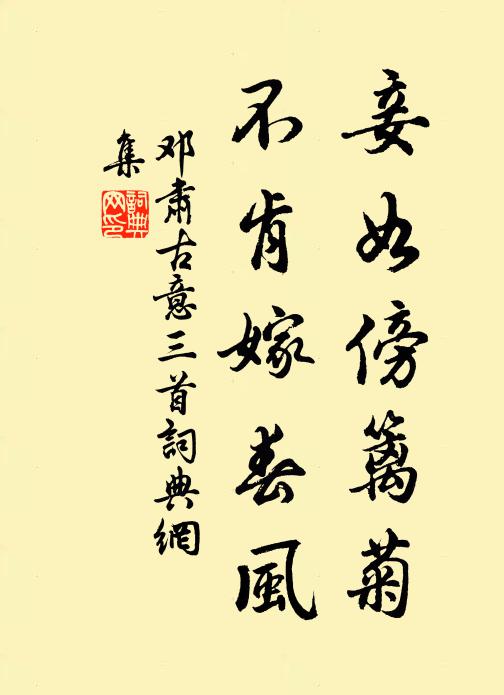 妾如傍篱菊
不肯嫁春風
邓肃古意三首詞典網
集
詞典
网印